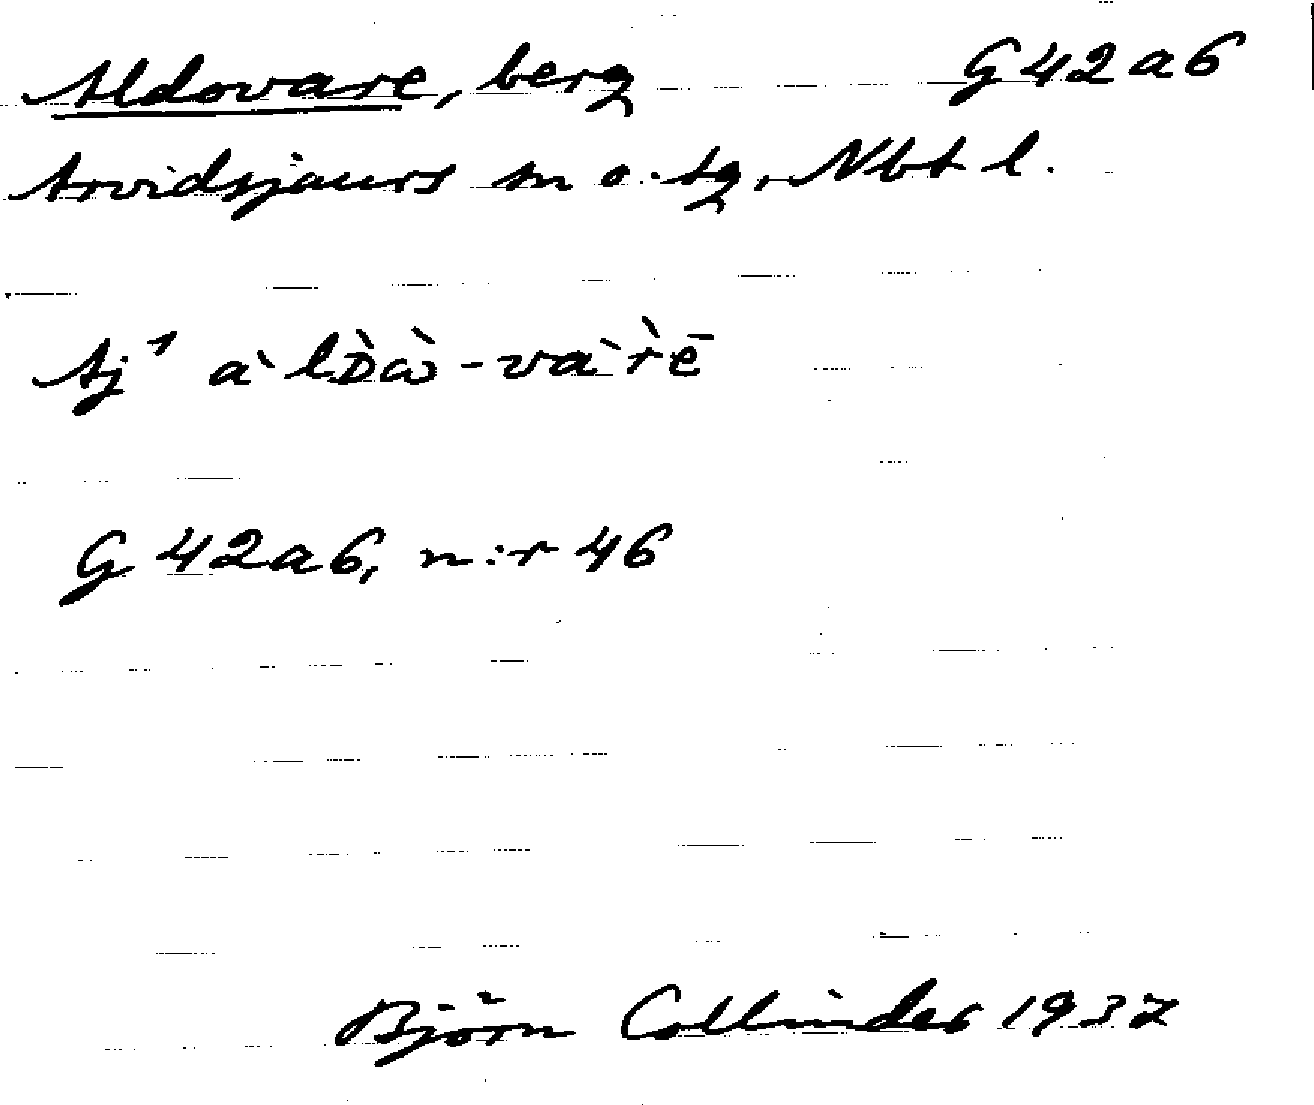 Aldovare, berg G42a6
Arvidsjaurs sn o. tg, Nbt l.
Aj¹ àlᴅ̀ὼ-vàr̀ē
G 42a6, n:r 46
Björn Collinder 1937